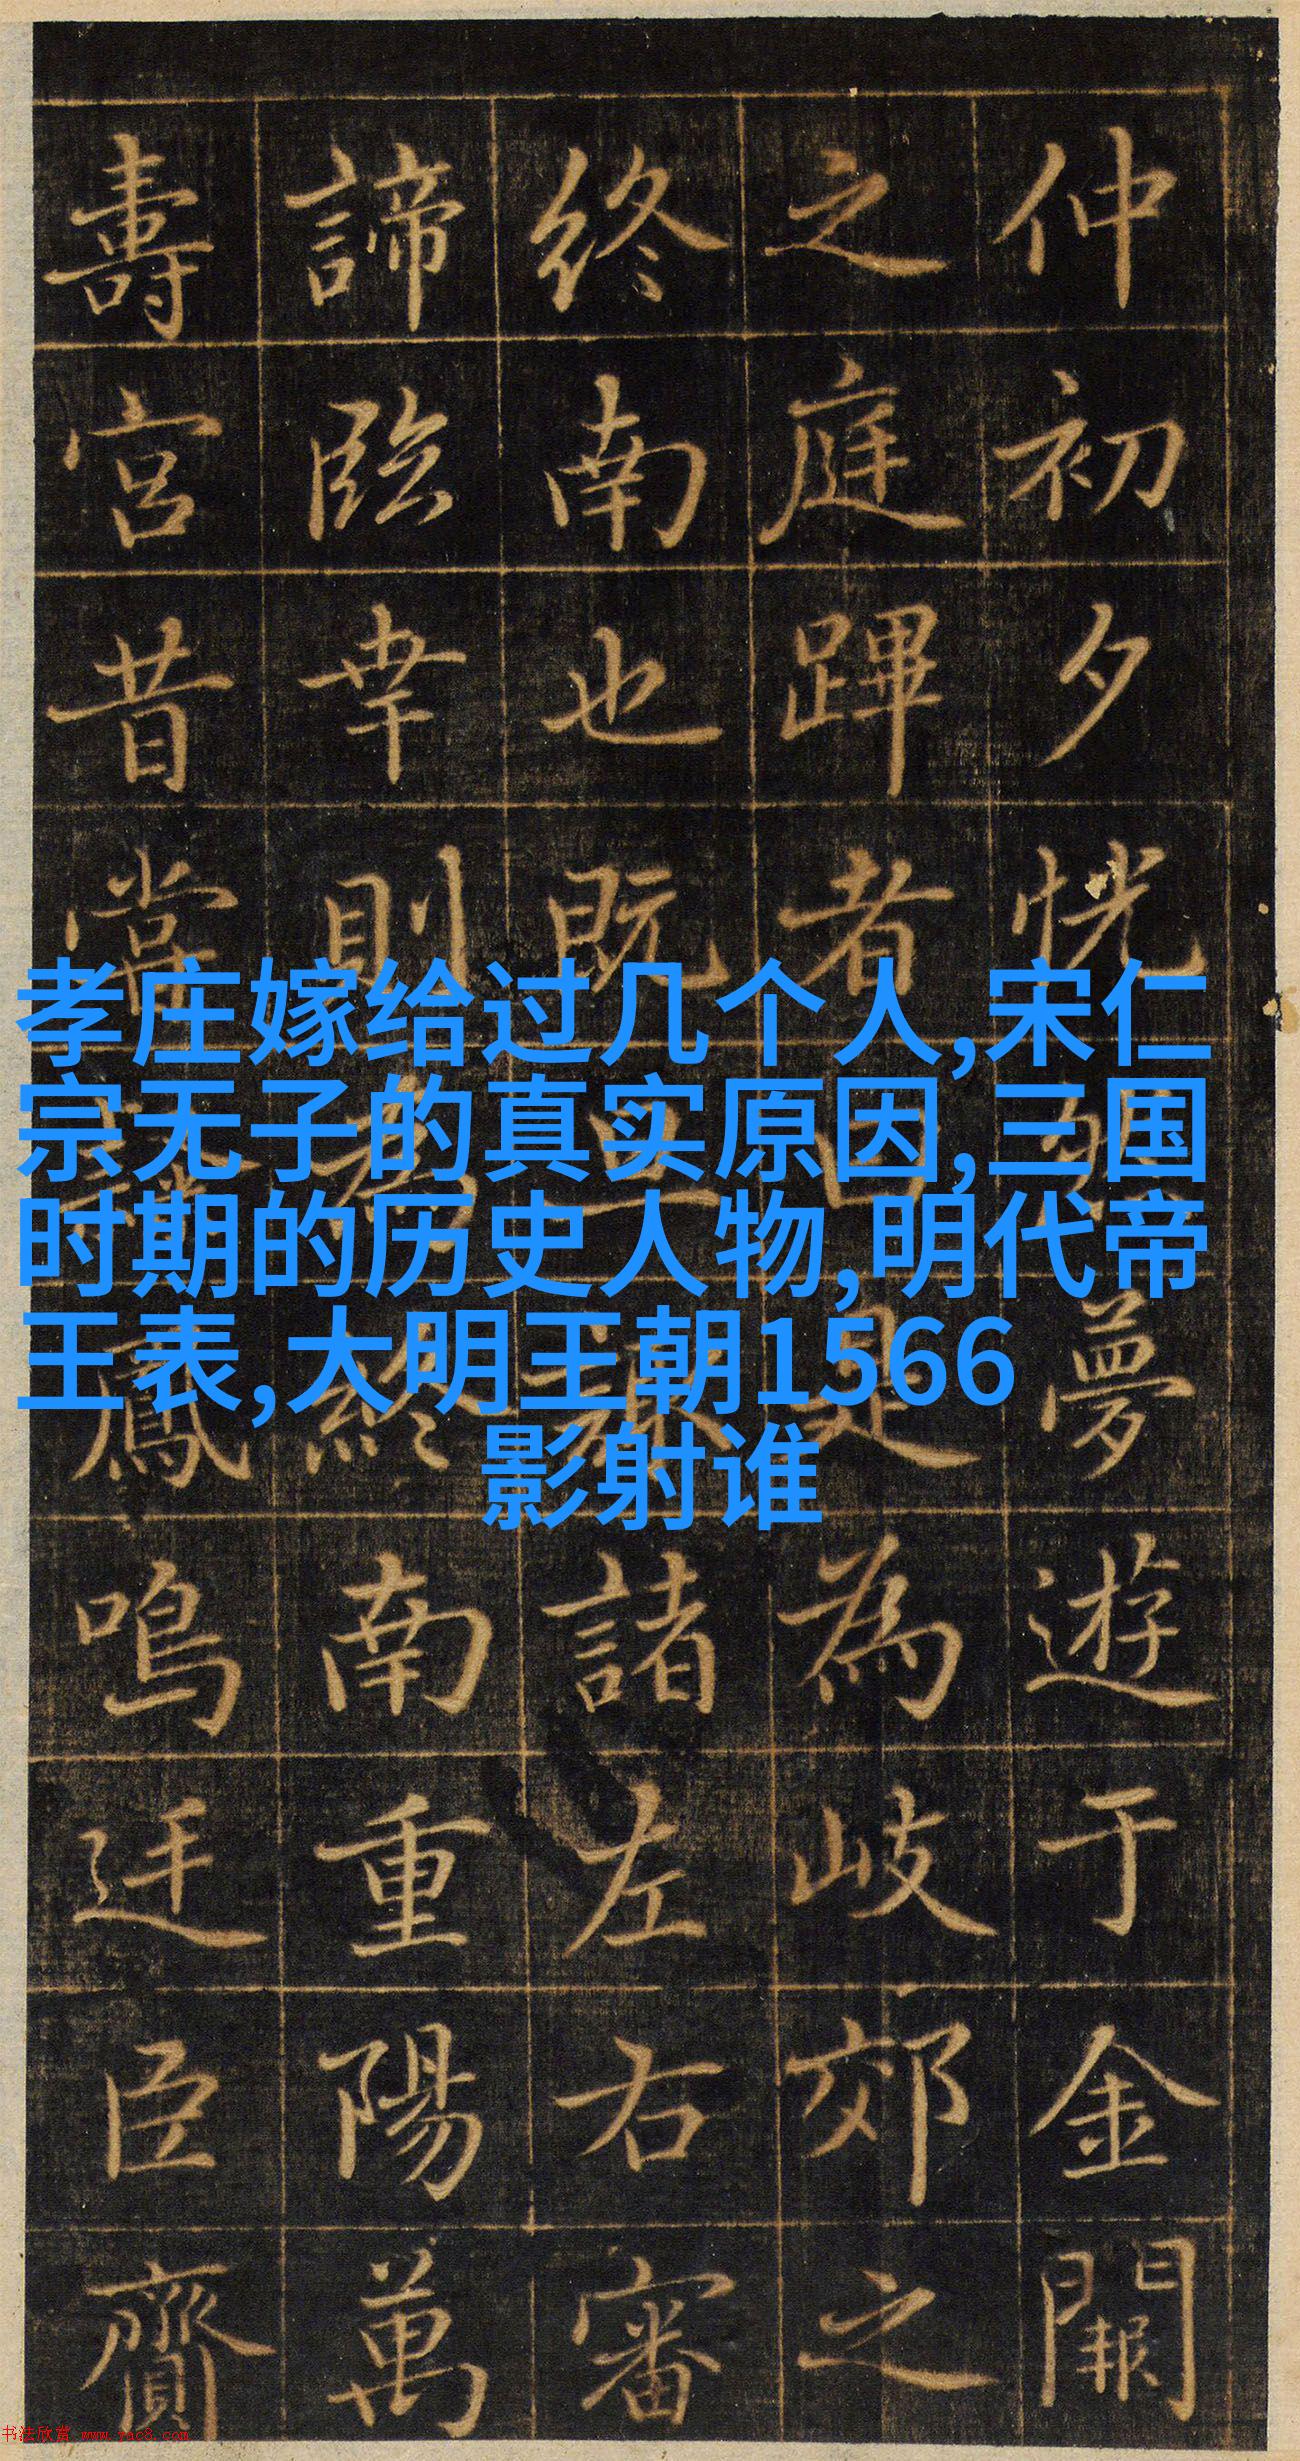 仲初夕恍夢遊于金闕
之庭蹕者曰是為岐郊之
終南也既諸左右審
諦臨幸則為終南重陽萬
壽宮昔嘗鳳鳴臣齎
孝庄嫁给过几个人,宋仁
宗无子的真实原因,三国
时期的历史人物,明代帝
王表,大明王朝1566
影射谁
书法欣赏 www.yac8.com